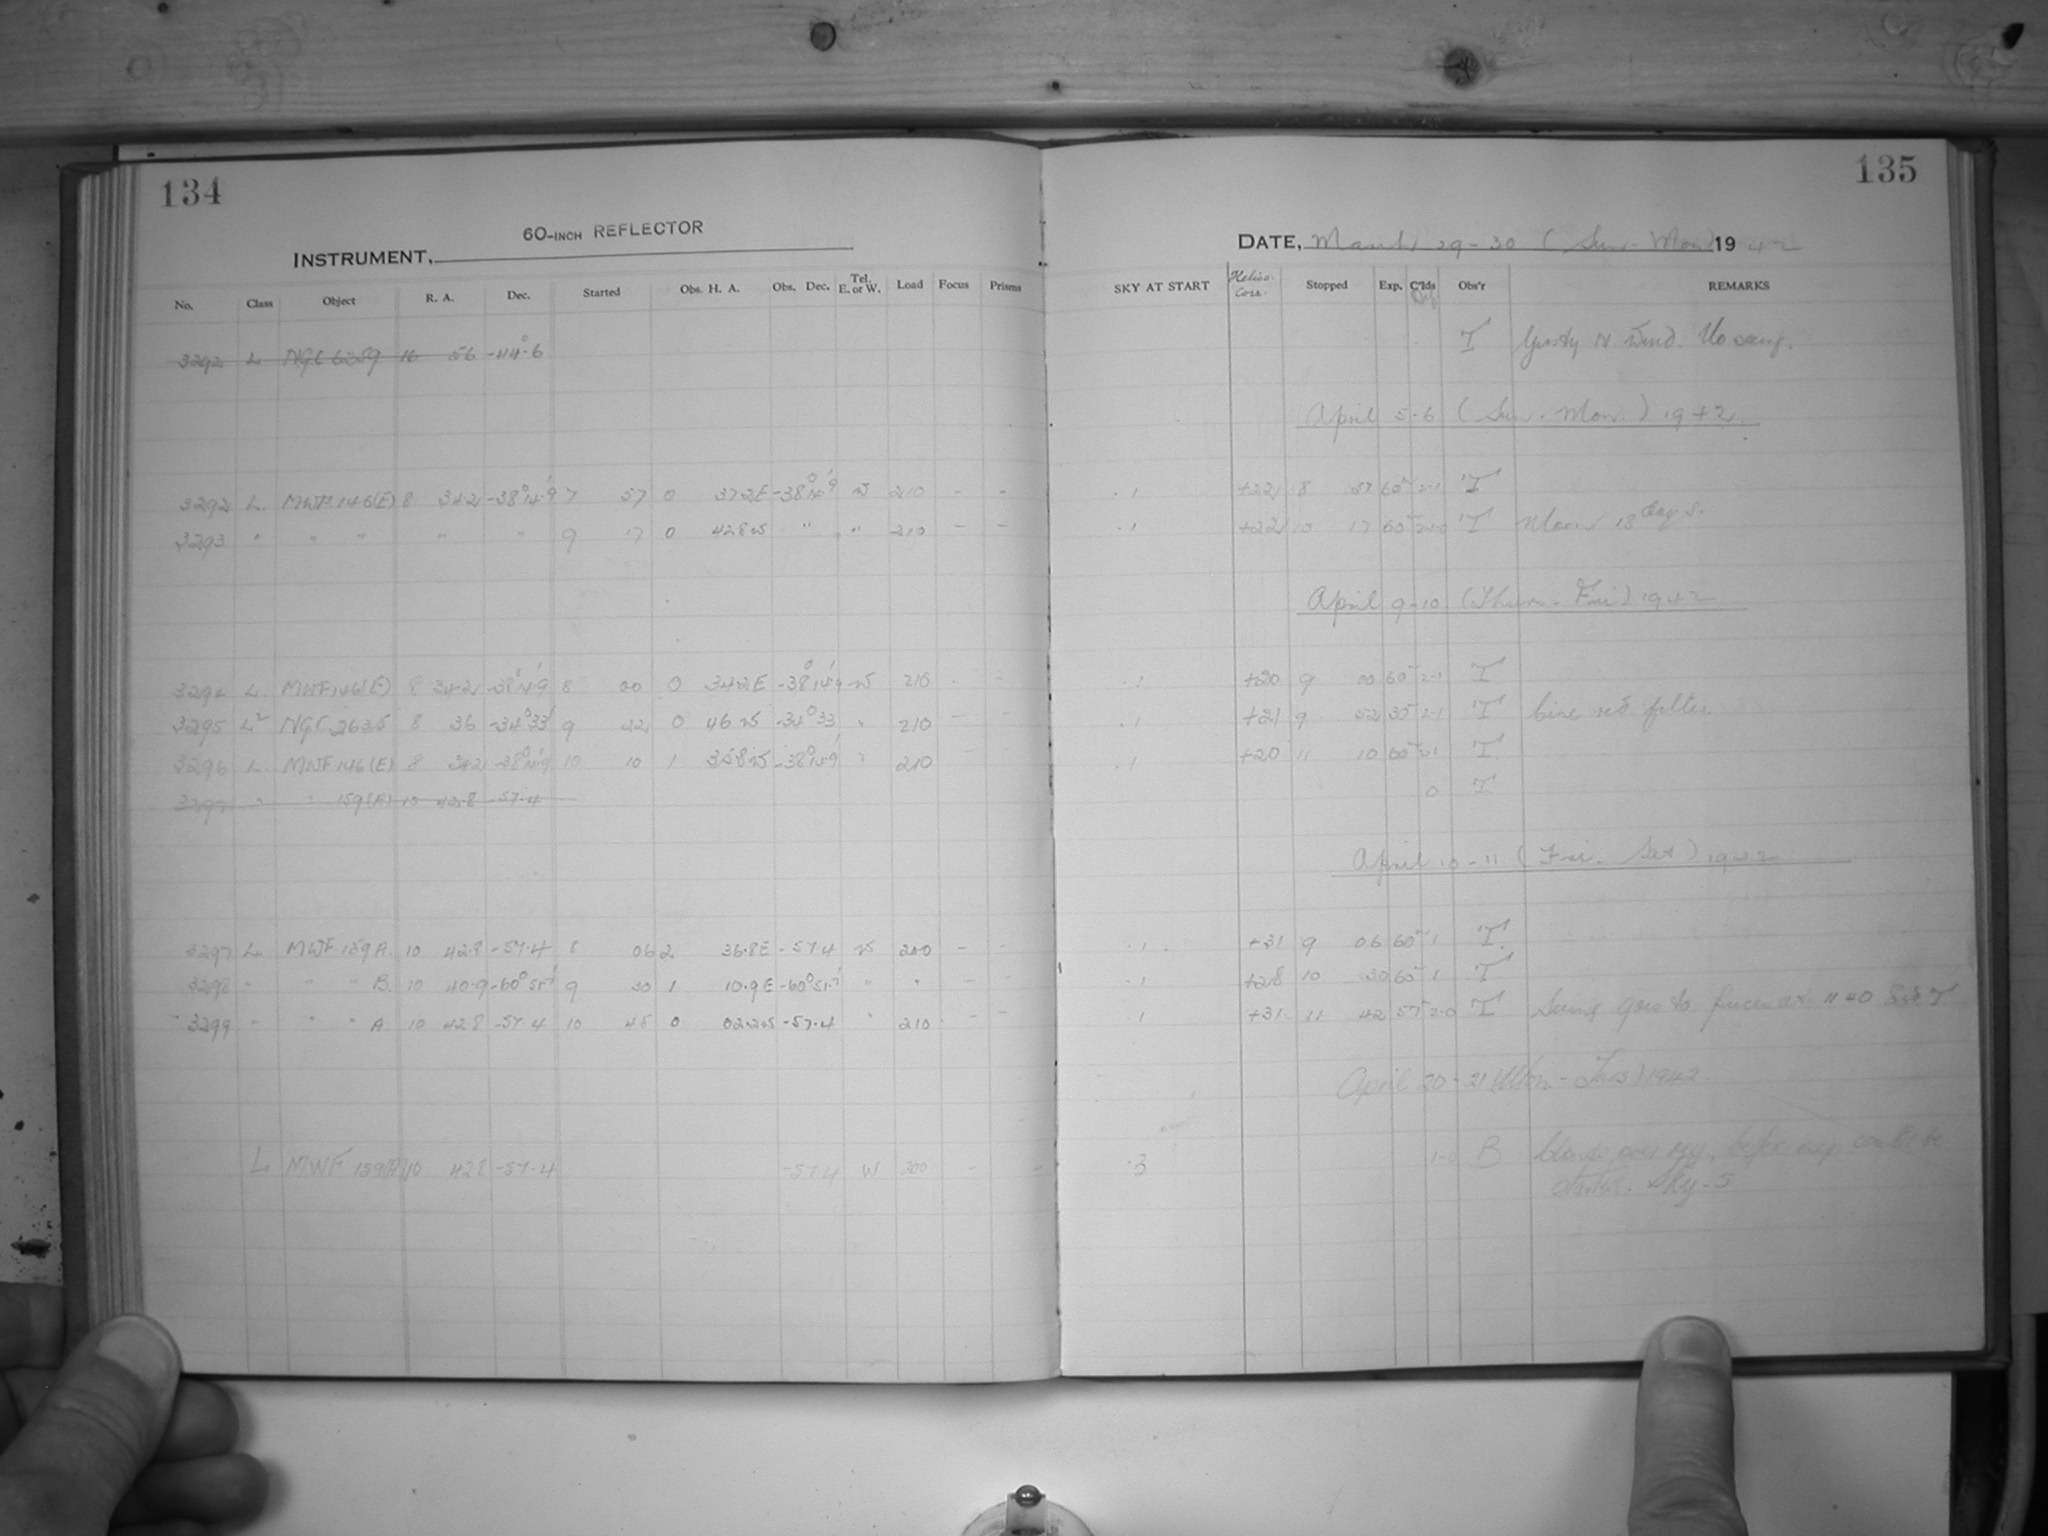 134
60-INCH REFLECTOR
INSTRUMENT,
No. Class Object R. A. Dec. Started Obs. H. A. Obs. Dec. Tel. E. or W. Load Focus Prisms
3292 L NGC 6259 16 56 -44°.6
3292 L MWF 146(E) 8 34.2 -38°14.9' 7 57 0 37.2E -38°14.9' W 210 - -
3293 " " " " " 9 17 0 42.8W " " 210 - -
3294 L MWF 146(E) 8 34.2 -38°14.9' 8 00 0 34.2E -38°14.9' W 210 - -
3295 L² NGC 2635 8 36 -34°33' 9 22 0 46 W -34°33 " 210 - -
3296 L MWF 146(E) 8 34.2 -38°14.9' 10 10 1 W -38°14.9' " 210
3297 " " 159(A) 10 42.8 -57.4
3297 L MWF 159 A. 10 42.8 -57.4 8 06 2 36.8E -57.4 W 200 - -
3298 " " " B. 10 40.9 -60°51.7' 9 30 1 10.9E -60°51.7' " " - -
3299 " " " A. 10 42.8 -57.4 10 45 0 02.2W -57.4 " 210 - -
L MWF 159(A) 10 42.8 -57.4 -57.4 W 200 - -
135
DATE, March 29-30 (Sun-Mon) 1942
SKY AT START Helioc. Corr. Stopped Exp. C'lds Obs'r REMARKS
T Gusty N wind. No seeing.
April 5-6 (Sun. Mon.) 1942.
.1 +22 8 57 60 2-1 T
.1 +22 10 17 60 2-0 T Moon 18 days.
April 9-10 (Thurs-Fri) 1942
.1 +20 9 00 60 2-1 T
.1 +21 9 52 30 2-1 T red filter
.1 +20 11 10 60 2-1 T
0 T
April 10-11 (Fri-Sat) 1942
.1 +31 9 06 60 1 T.
.1 +28 10 30 60 1 T
.1 +31 11 42 57 2-0 T Seeing goes to pieces at 11 40
April 20-21 (Mon-Tues) 1942
.3 1-0 B before exp could be
started. Sky .5